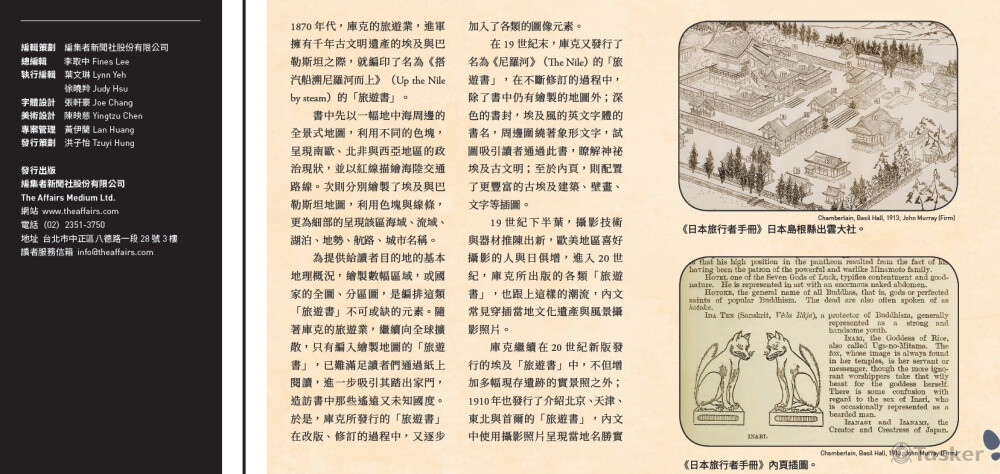 編輯策劃　編集者新聞社股份有限公司
總編輯　李取中 Fines Lee
執行編輯　葉文琳 Lynn Yeh
徐曉羚 Judy Hsu
字體設計　張軒豪 Joe Chang
美術設計　陳映慈 Yingtzu Chen
專案管理　黃伊蘭 Lan Huang
發行策劃　洪子怡 Tzuyi Hung
發行出版
編集者新聞社股份有限公司
The Affairs Medium Ltd.
網站 www.theaffairs.com
電話 (02) 2351-3750
地址 台北市中正區八德路一段 28 號 3 樓
讀者服務信箱 info@theaffairs.com
1870 年代，庫克的旅遊業，進軍
擁有千年古文明遺產的埃及與巴
勒斯坦之際，就編印了名為《搭
汽船溯尼羅河而上》（Up the Nile
by steam）的「旅遊書」。
書中先以一幅地中海周邊的
全景式地圖，利用不同的色塊，
呈現南歐、北非與西亞地區的政
治現狀，並以紅線描繪海陸交通
路線。次則分別繪製了埃及與巴
勒斯坦地圖，利用色塊與線條，
更為細部的呈現該區海域、流域、
湖泊、地勢、航路、城市名稱。
為提供給讀者目的地的基本
地理概況，繪製數幅區域，或國
家的全圖、分區圖，是編排這類
「旅遊書」不可或缺的元素。隨
著庫克的旅遊業，繼續向全球擴
散，只有編入繪製地圖的「旅遊
書」，已難滿足讀者們通過紙上
閱讀，進一步吸引其踏出家門，
造訪書中那些遙遠又未知國度。
於是，庫克所發行的「旅遊書」
在改版、修訂的過程中，又逐步
加入了各類的圖像元素。
在 19 世紀末，庫克又發行了
名為《尼羅河》（The Nile）的「旅
遊書」，在不斷修訂的過程中，
除了書中仍有繪製的地圖外；深
色的書封，埃及風的英文字體的
書名，周邊圍繞著象形文字，試
圖吸引讀者通過此書，瞭解神祕
埃及古文明；至於內頁，則配置
了更豐富的古埃及建築、壁畫、
文字等插圖。
19 世紀下半葉，攝影技術
與器材推陳出新，歐美地區喜好
攝影的人與日俱增，進入 20 世
紀，庫克所出版的各類「旅遊
書」，也跟上這樣的潮流，內文
常見穿插當地文化遺產與風景攝
影照片。
庫克繼續在 20 世紀新版發
行的埃及「旅遊書」中，不但增
加多幅現存遺跡的實景照之外；
1910 年也發行了介紹北京、天津、
東北與首爾的「旅遊書」，內文
中使用攝影照片呈現當地名勝實
Chamberlain, Basil Hall, 1913, John Murray (Firm)
《日本旅行者手冊》日本島根縣出雲大社。
that his high position in the pantheon resulted from the fact of his
having been the patron of the powerful and warlike Minamoto family.
HOTEI, one of the Seven Gods of Luck, typifies contentment and good-
nature. He is represented in art with an enormous naked abdomen.
HOTOKE, the general name of all Buddhas, that is, gods or perfected
saints of popular Buddhism. The dead are also often spoken of as
hotoke.
IDA TEN (Sanskrit, Vêda Râja), a protector of Buddhism, generally
represented as a strong and
handsome youth.
INARI, the Goddess of Rice,
also called Uga-no-Mitama. The
fox, whose image is always found
in her temples, is her servant or
messenger, though the more igno-
rant worshippers take that wily
beast for the goddess herself.
There is some confusion with
regard to the sex of Inari, who
is occasionally represented as a
bearded man.
IZANAGI and IZANAMI, the
Creator and Creatress of Japan.
INARI.
Chamberlain, Basil Hall, 1913, John Murray (Firm)
《日本旅行者手冊》內頁插圖。
Tasker